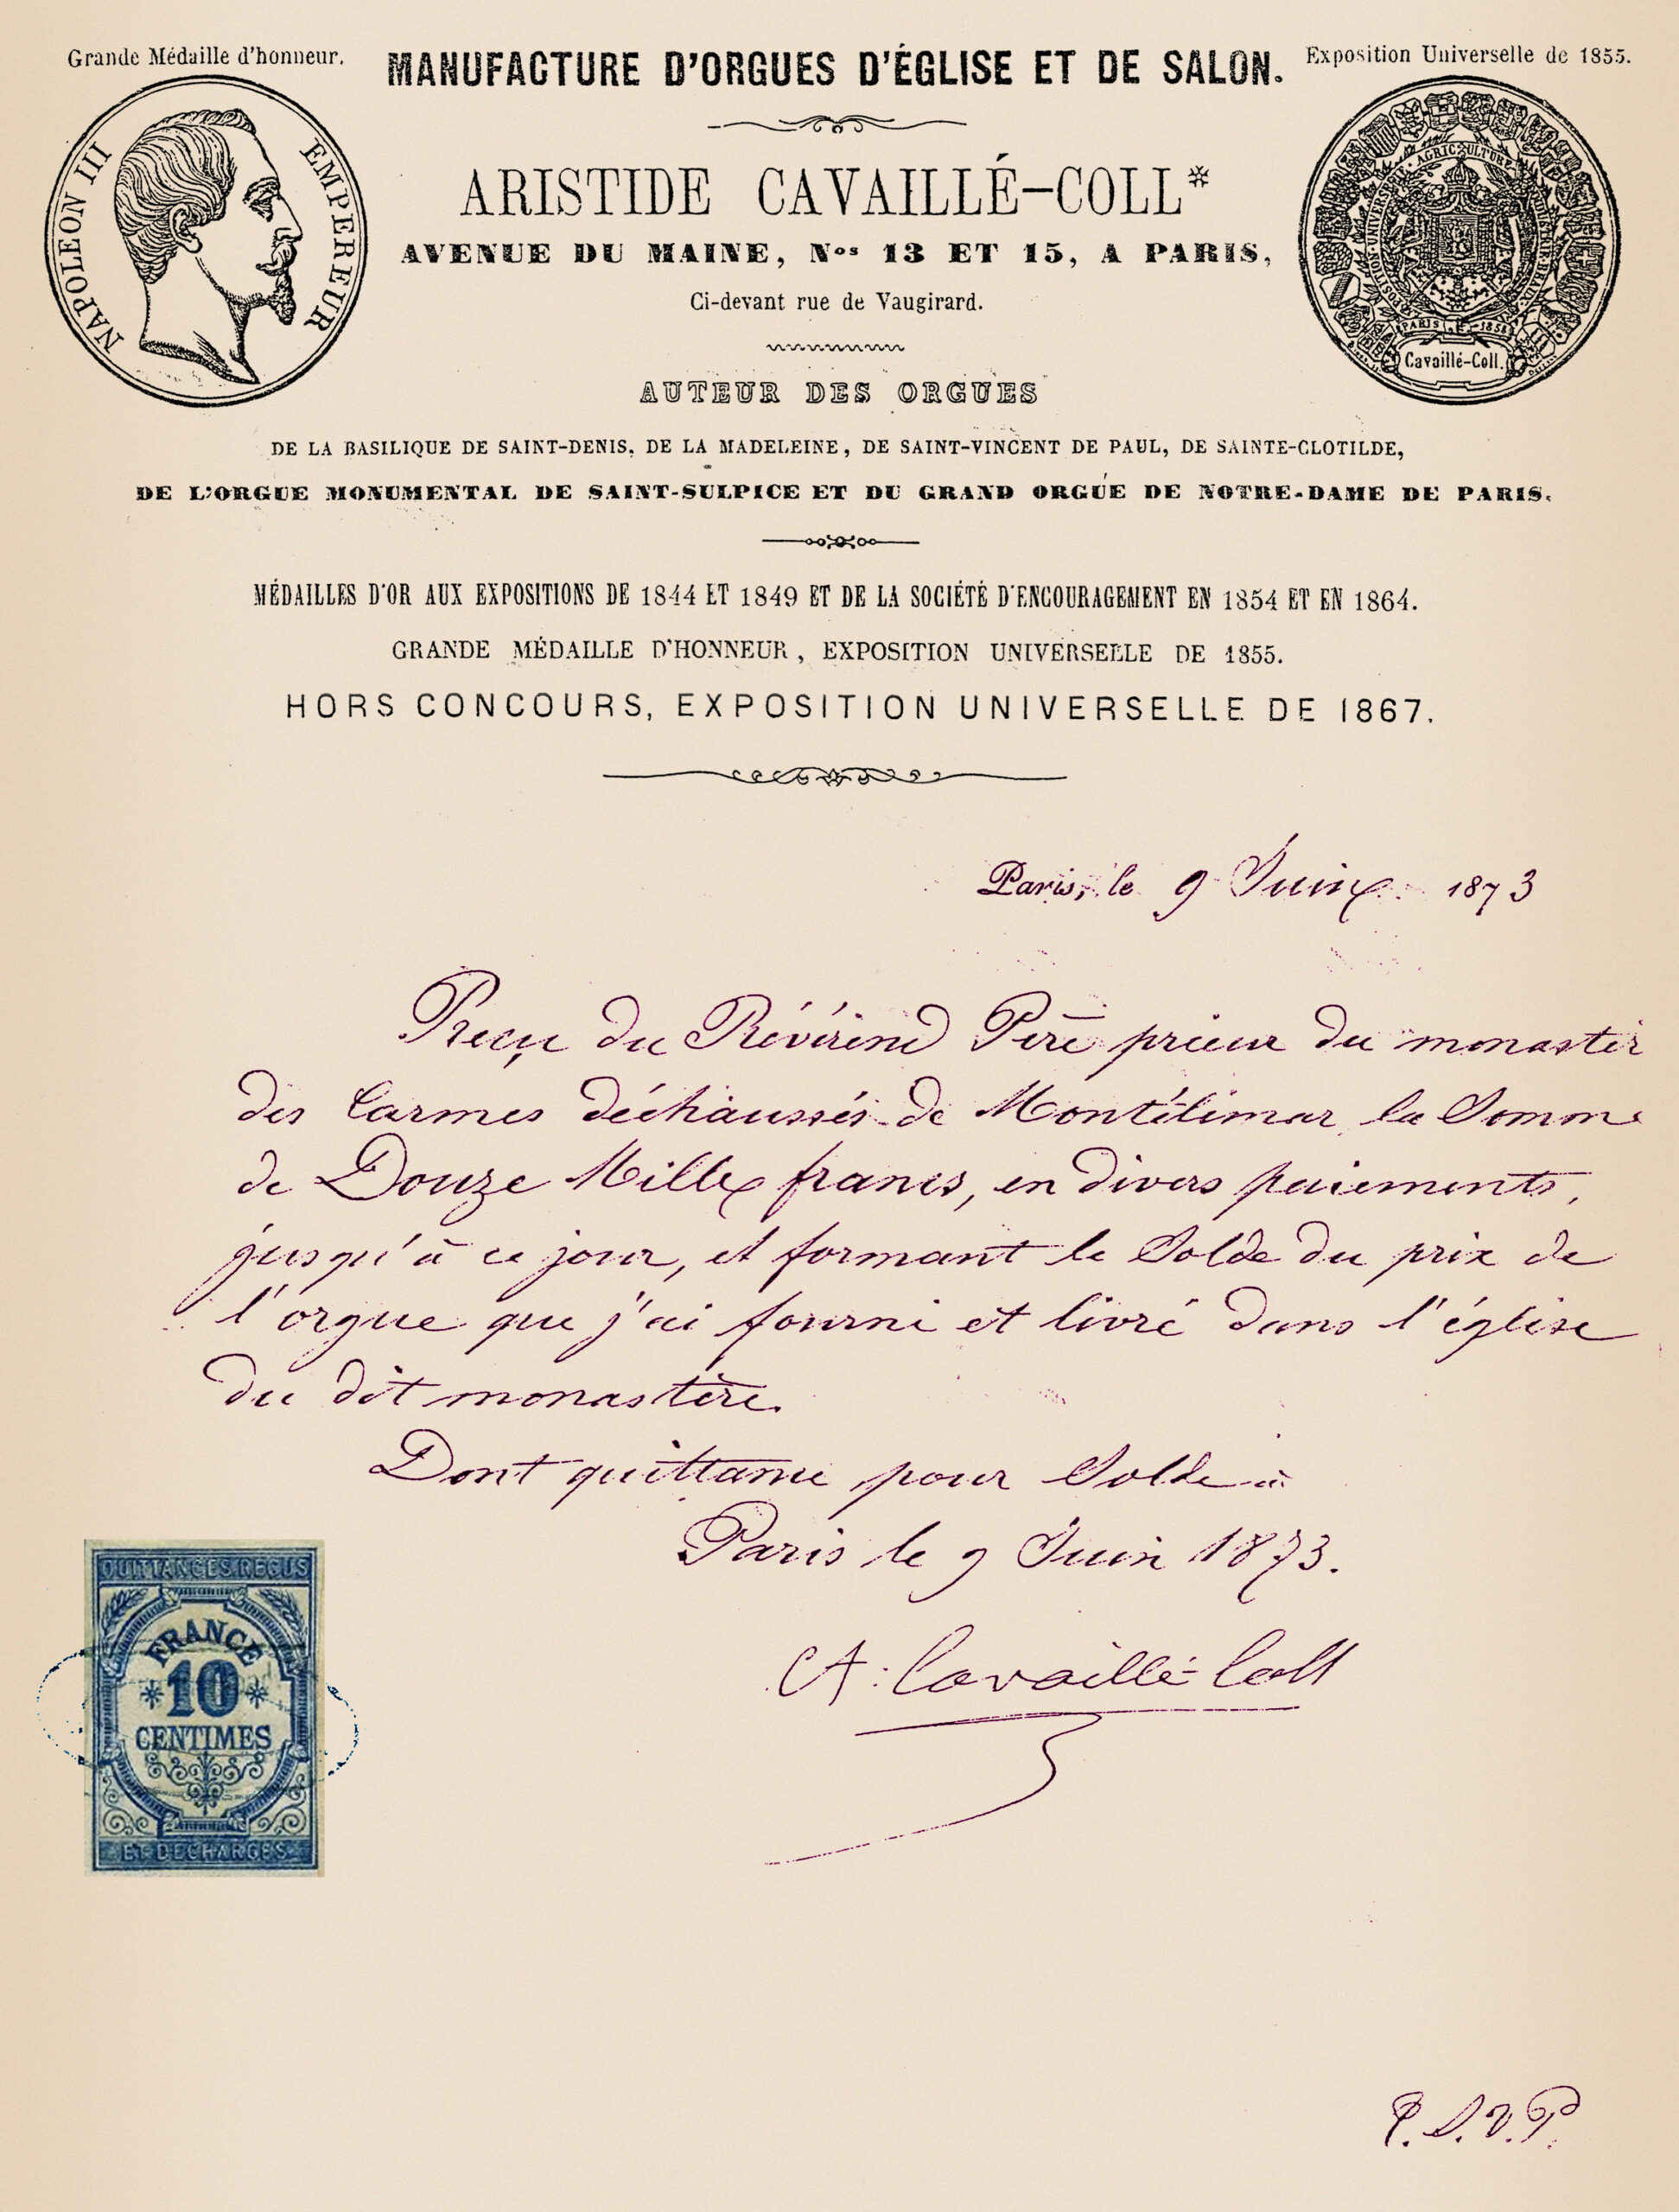 Grande Médaille d'honneur.
MANUFACTURE D'ORGUES D'ÉGLISE ET DE SALON.
Exposition Universelle de 1855.
NAPOLEON III EMPEREUR
ARISTIDE CAVAILLÉ-COLL*
AVENUE DU MAINE, Nos 13 ET 15, A PARIS,
Ci-devant rue de Vaugirard.
AGRICULTURE
PARIS 1855
Cavaillé-Coll.
AUTEUR DES ORGUES
DE LA BASILIQUE DE SAINT-DENIS, DE LA MADELEINE, DE SAINT-VINCENT DE PAUL, DE SAINTE-CLOTILDE,
DE L'ORGUE MONUMENTAL DE SAINT-SULPICE ET DU GRAND ORGUE DE NOTRE-DAME DE PARIS.
MÉDAILLES D'OR AUX EXPOSITIONS DE 1844 ET 1849 ET DE LA SOCIÉTÉ D'ENCOURAGEMENT EN 1854 ET EN 1864.
GRANDE MÉDAILLE D'HONNEUR, EXPOSITION UNIVERSELLE DE 1855.
HORS CONCOURS, EXPOSITION UNIVERSELLE DE 1867.
Paris, le 9 Juin 1873
Reçu du Révérend Père prieur du monastèr
des Carmes déchaussés de Montélimar la Somme
de Douze Mille francs, en divers paiements,
jusqu'à ce jour, et formant le Solde du prix de
l'orgue que j'ai fourni et livré dans l'église
du dit monastère.
Dont quittance pour Solde à
Paris le 9 Juin 1873.
A. Cavaillé-Coll
QUITTANCES.REÇUS
FRANCE
*10*
CENTIMES
ET DECHARGES
T.S.V.P.